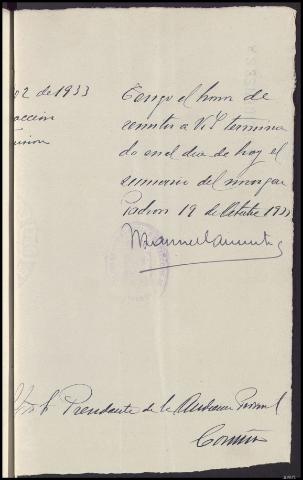 02 de 1933
Tengo el honor de
remitir a V.S. termina
do en el dia de hoy el
sumario del margen
Padron 19 de Octubre 1933
Presidente de la Audiencia Provincial
Coruña